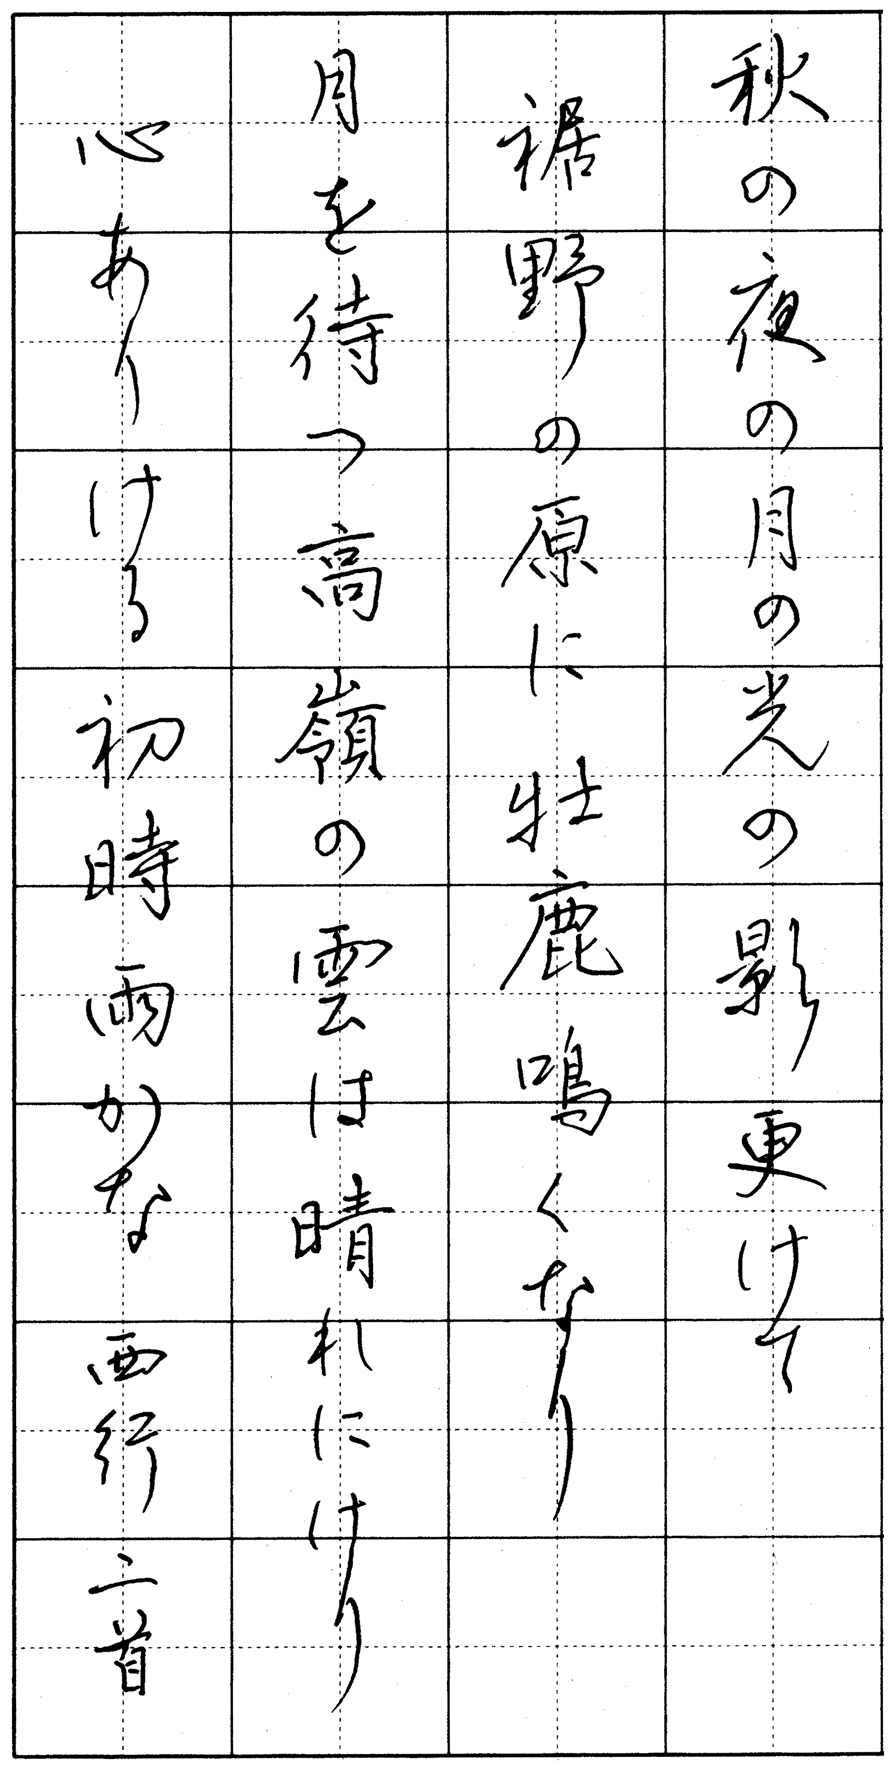 秋の夜の月の光の影更けて
裾野の原に牡鹿鳴くなり
月を待つ高嶺の雲は晴れにけり
心ありける初時雨かな 西行 二首